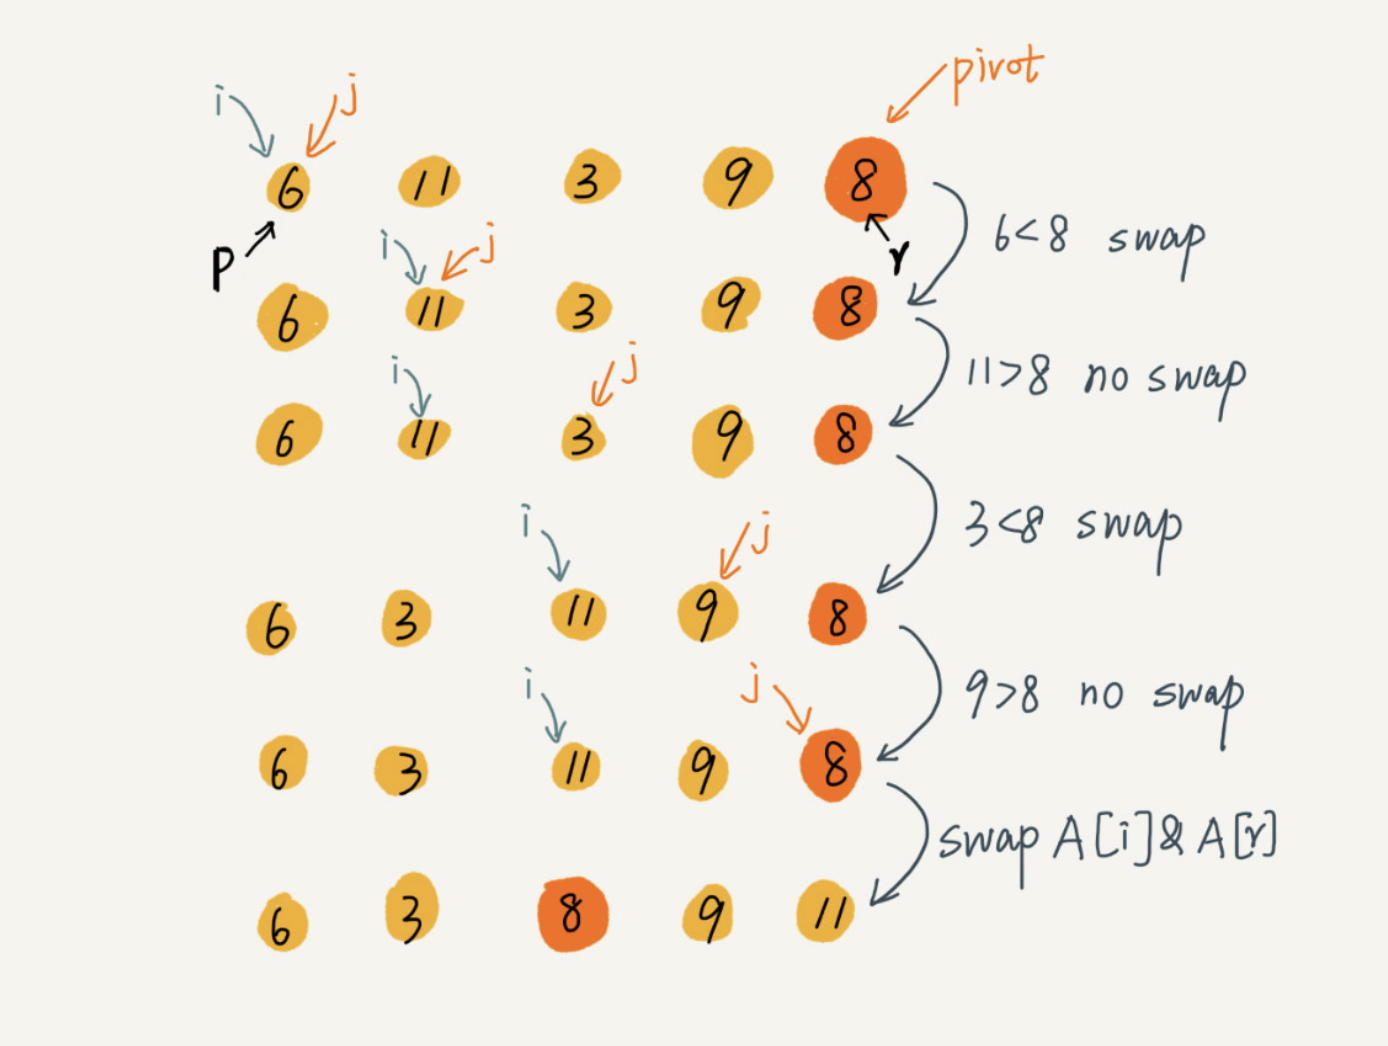 pivot
i j
6 11 3 9 8
p r
6<8 swap
i j
6 11 3 9 8
11>8 no swap
i j
6 11 3 9 8
3<8 swap
i j
6 3 11 9 8
9>8 no swap
i j
6 3 11 9 8
swap A[i]& A[r]
6 3 8 9 11